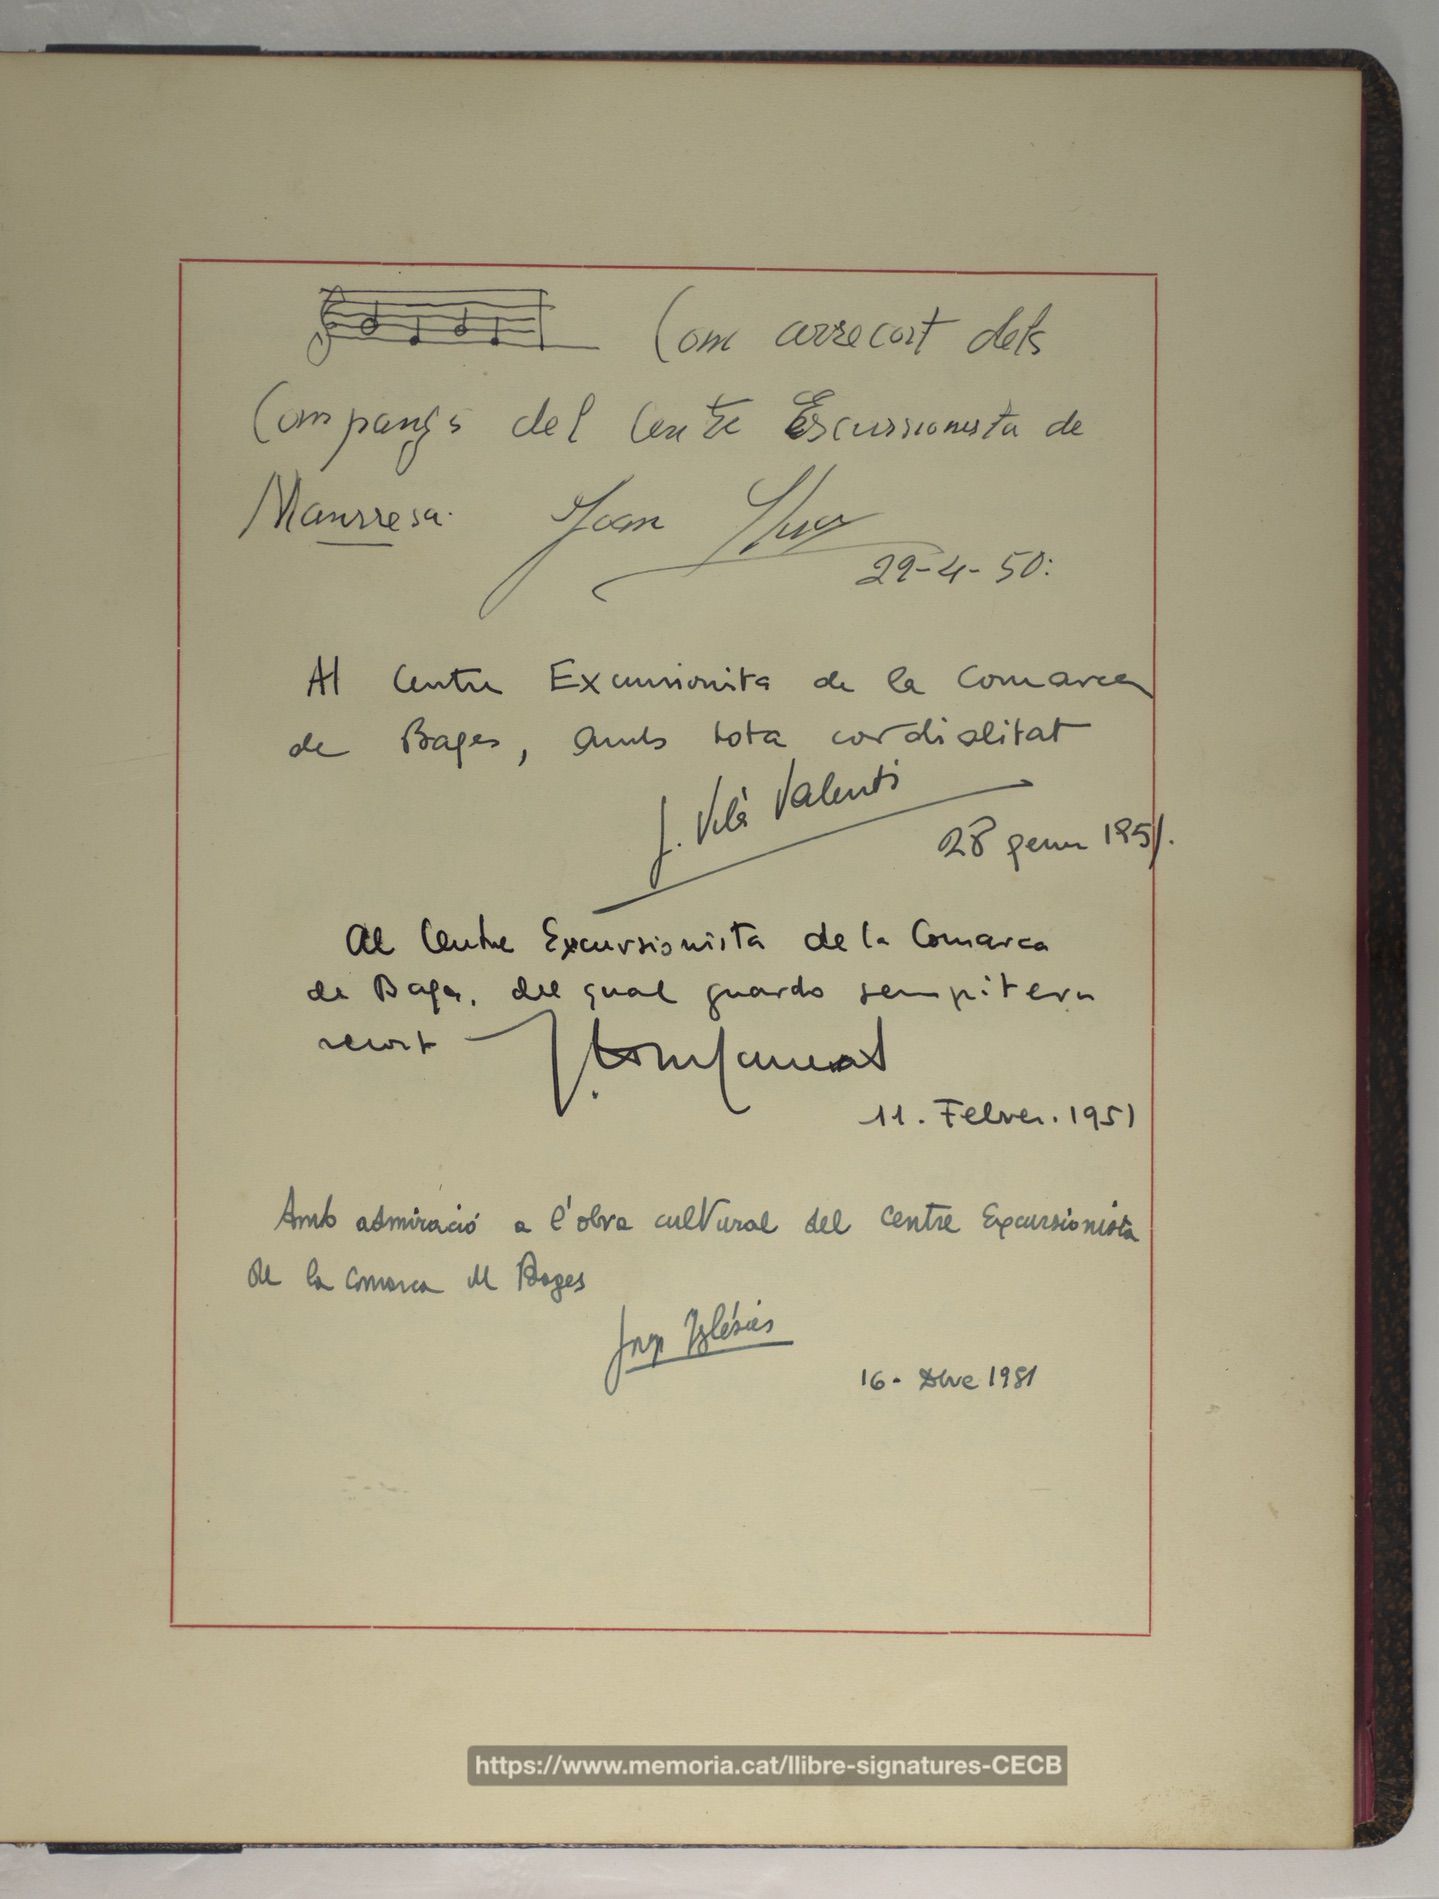 Com arrecort dels
Companys del Centre Escurssionista de
Manrresa. Joan
29-4-50:
Al Centre Excursionista de la Comarca
de Bages, amb tota cordialitat
J. Vilà Valentí
28 gener 1951.
Al Centre Excursionista de la Comarca
de Bages, del qual guardo sempitern
record
11. Febrer. 1951
Amb admiració a l'obra cultural del Centre Excursionista
de la Comarca de Bages
Josep Iglésies
16- 1951
https://www.memoria.cat/llibre-signatures-CECB